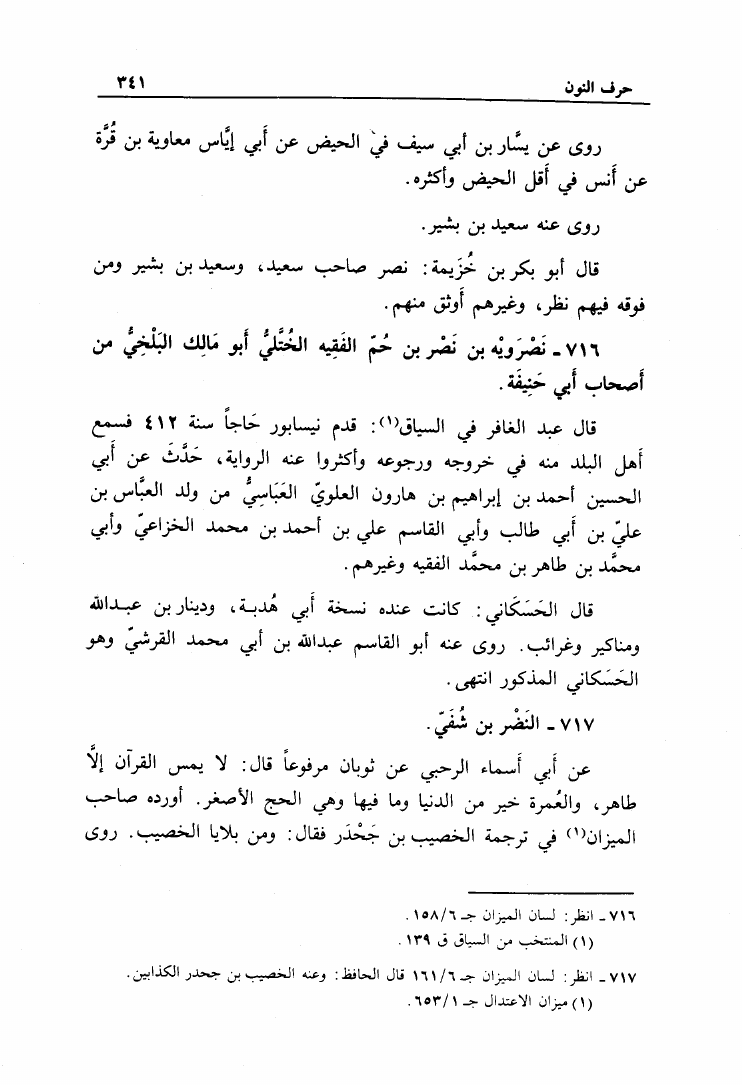 حرف النون ٣٤١
روى عن يسَّار بن أبي سيف في الحيض عن أَبي إيَّاس معاوية بن قُرَّة
عن أَنس في أَقل الحيض وأكثره.
روى عنه سعيد بن بشير.
قال أبو بكر بن خُزَيمة: نصر صاحب سعيد، وسعيد بن بشير ومن
فوقه فيهم نظر، وغيرهم أَوثق منهم.
٧١٦ ـ نَصْرَويْه بن نَصْر بن حُمّ الفَقِيه الخُتَّليُّ أَبو مَالِك البَلْخِيُّ من
أَصحاب أَبي حَنِيفَة.
قال عبد الغافر في السياق(١): قدم نيسابور حَاجاً سنة ٤١٢ فسمع
أَهل البلد منه في خروجه ورجوعه وأكثروا عنه الرواية، حَدَّثَ عن أَبي
الحسين أحمد بن إبراهيم بن هارون العلويّ العَبَاسِيُّ من ولد العبَّاس بن
عليّ بن أَبي طالب وأبي القاسم علي بن أحمد بن محمد الخزاعيّ وأبي
محمَّد بن طاهر بن محمَّد الفقيه وغيرهم.
قال الحَسَكَاني: كانت عنده نسخة أَبي هُدبة، ودينار بن عبدالله
ومناكير وغرائب. روى عنه أبو القاسم عبدالله بن أبي محمد القرشيّ وهو
الحَسَكاني المذكور انتهى.
٧١٧ ـ النَضْر بن شُفَيّ.
عن أَبي أَسماء الرحبي عن ثوبان مرفوعاً قال: لا يمس القرآن إلَّا
طاهر، والعُمرة خير من الدنيا وما فيها وهي الحج الأصغر. أورده صاحب
الميزان(١) في ترجمة الخصيب بن جَحْدَر فقال: ومن بلايا الخصيب. روى
٧١٦ ـ انظر: لسان الميزان جـ ١٥٨/٦.
(١) المنتخب من السياق ق ١٣٩.
٧١٧ ـ انظر: لسان الميزان جـ ١٦١/٦ قال الحافظ: وعنه الخصيب بن جحدر الكذابين.
(١) ميزان الاعتدال جـ ٦٥٣/١.